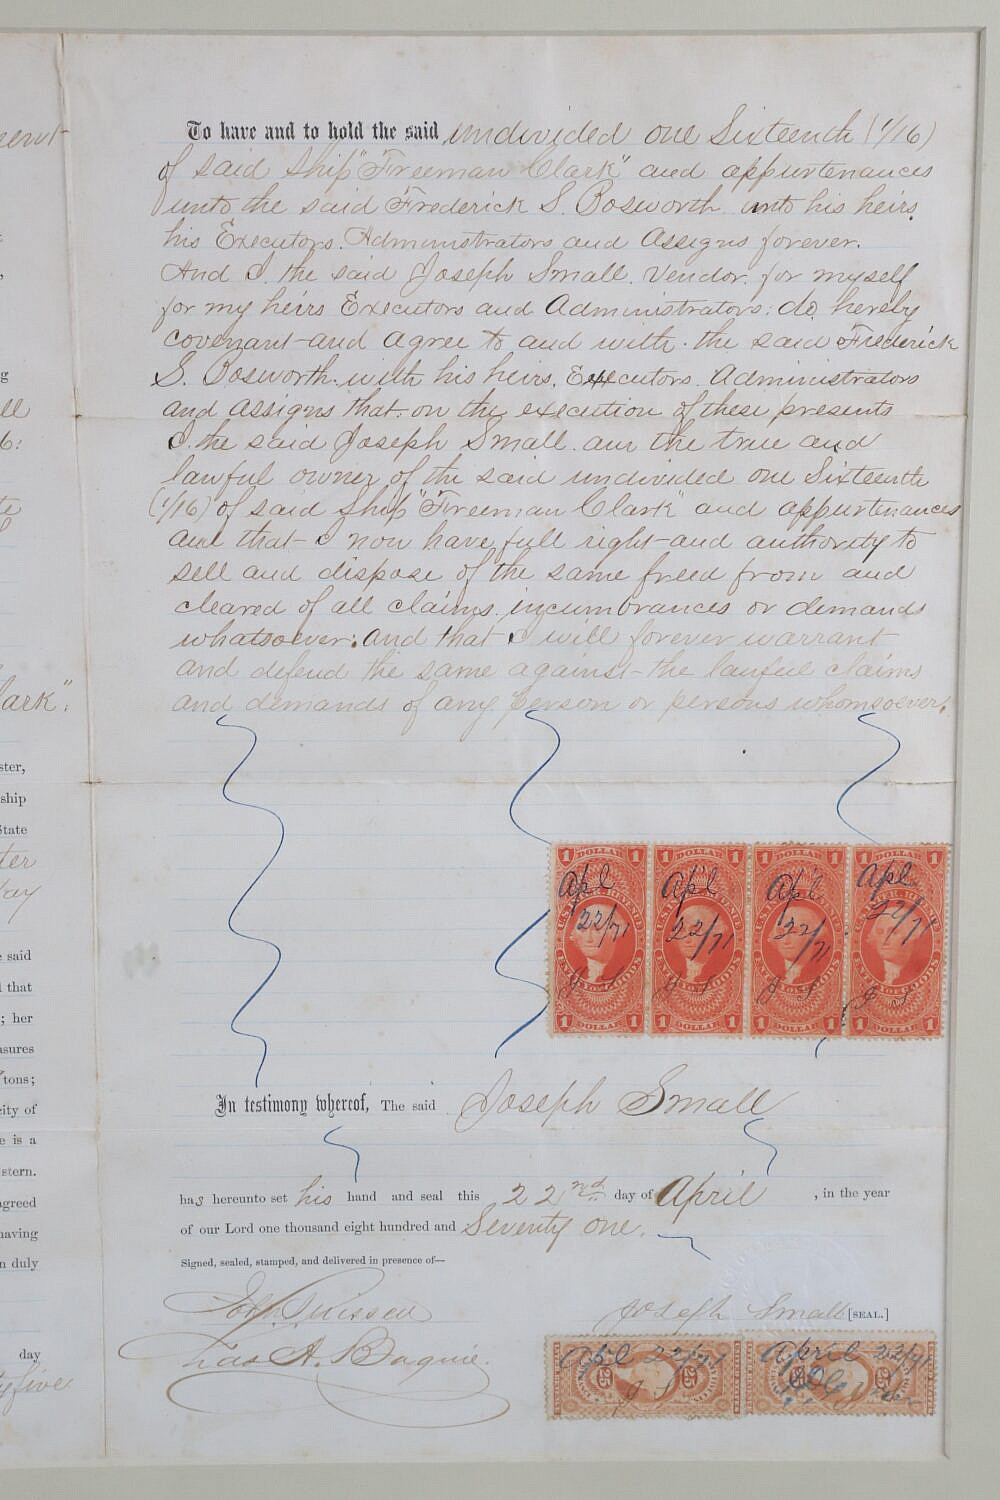 To have and to hold the said undivided one Sixteenth (1/16)
of said Ship "Freeman Clark" and appurtenances
unto the said Frederick S. Bosworth unto his heirs
his Executors. Administrators and Assigns forever.
And I. the said Joseph Small. Vendor. for myself
for my heirs Executors and Administrators: do hereby
covenant and agree to and with. the said Frederick
S. Bosworth. with his heirs, Executors. Administrators
and Assigns that. on the execution of these presents
I. the said Joseph Small. am the true and
lawful owner of the said undivided one Sixteenth
(1/16) of said Ship "Freeman Clark" and appurtenances
and that I now have full right and authority to
sell and dispose of the same freed from and
cleared of all claims. incumbrances or demands
whatsoever: and that I will forever warrant
and defend the same against the lawful claims
and demands of any person or persons whomsoever.
1 DOLLAR 1 1 DOLLAR 1 1 DOLLAR 1 1 DOLLAR 1
Apl Apl Apl Apl
22/71 22/71 22/71 22/71
J S J S J S J S
1 DOLLAR 1 1 DOLLAR 1 1 DOLLAR 1 1 DOLLAR 1
In testimony whereof, The said Joseph Small
has hereunto set his hand and seal this 22nd day of April, in the year
of our Lord one thousand eight hundred and Seventy one.
Signed, sealed, stamped, and delivered in presence of—
Joseph Small [SEAL.]
Apl 22/71 April 22/71
25 25 25 25
J S
ark."
ster,
ship
State
ter
said
that
; her
asures
tons;
city of
e is a
stern.
agreed
having
n duly
day
ty five